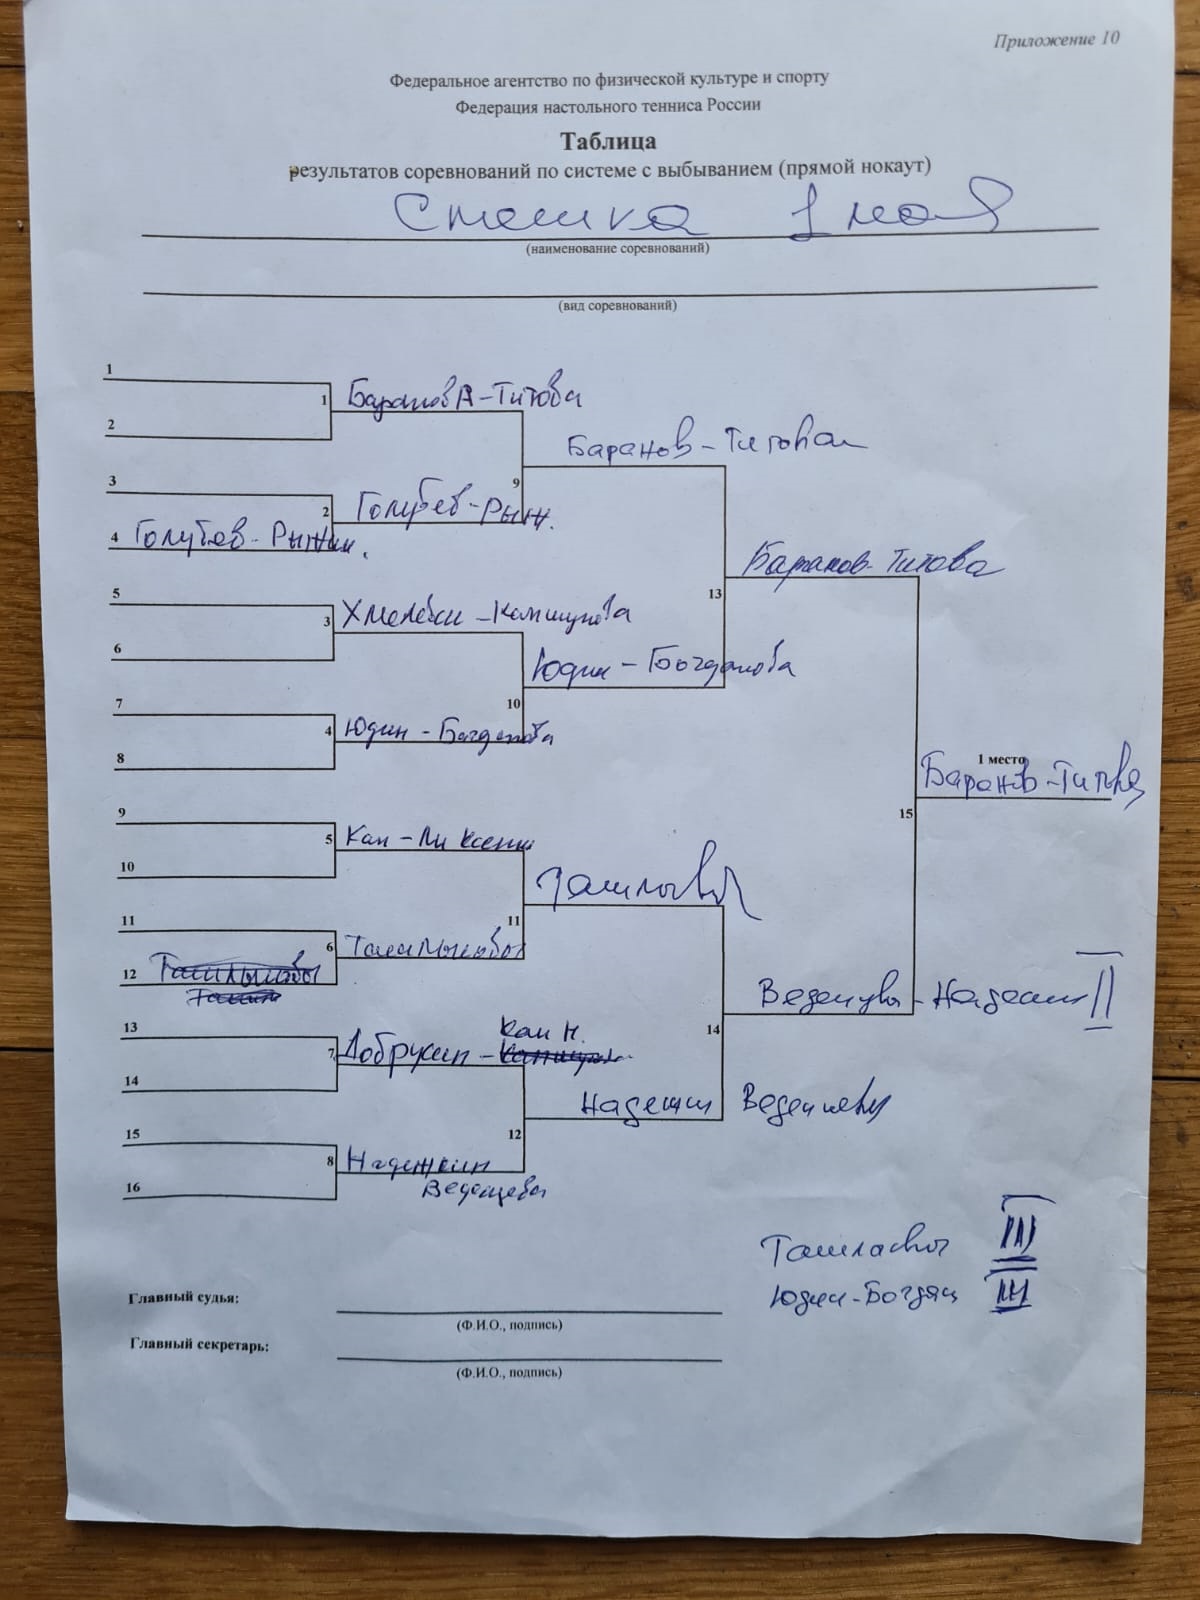 Приложение 10
Федеральное агентство по физической культуре и спорту
Федерация настольного тенниса России
Таблица
результатов соревнований по системе с выбыванием (прямой нокаут)
1 мая
(наименование соревнований)
(вид соревнований)
1
1 Баранов А - Титова
2
9 Баранов - Титова
3
2 Голубев - Рыж.
4 Голубев - Рыжик.
13 Баранов - Титова
5
3
6
10 Юдин - Богданова
7
4 Юдин - Богданова
8
1 место
Баранов - Титова
15
9
5 Кан - Ли Ксения
10
11
11
6
12
Веденцева - Надежкин II
13
Кан Н.
7 Добрусин -
14
14
Веденцева
15
12
8 Надежкин
16
Веденцева
III
Юдин - Богдан III
Главный судья:
(Ф.И.О., подпись)
Главный секретарь:
(Ф.И.О., подпись)